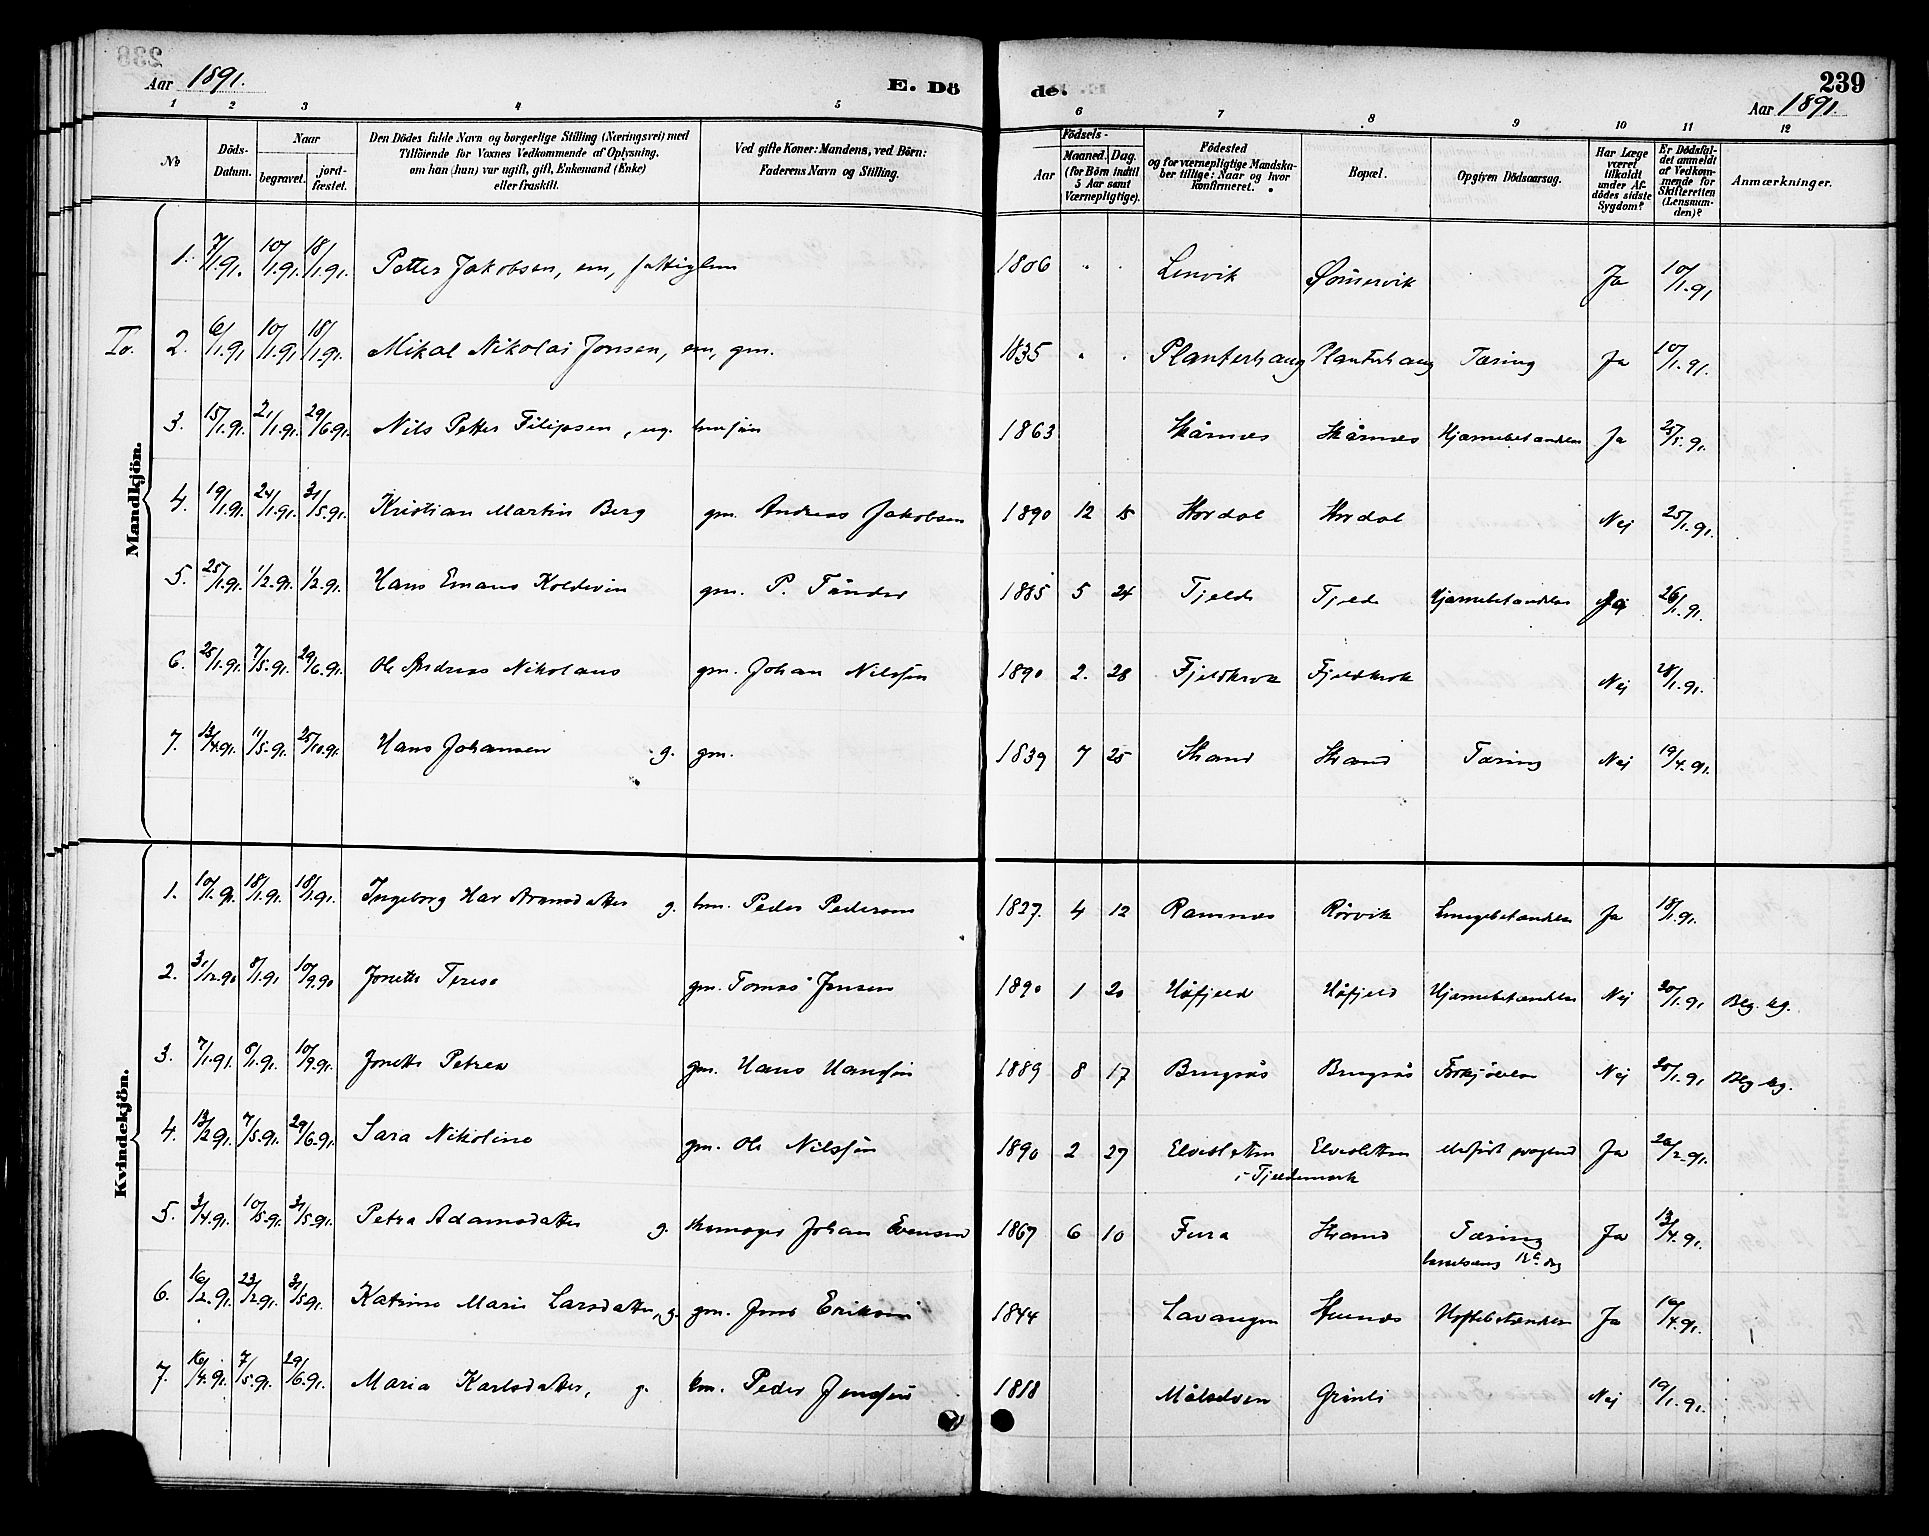 Aar 1891. E. Dö de. 239
Aar 1891.
1 2 3 4 5 6 7 8 9 10 11 12
No
Döds-Datum.
Naar
begravet.
jordfæstet.
Den Dödes fulde Navn og borgerlige Stilling (Næringsvei) med
Tilföiende for Voxnes Vedkommende af Oplysning.
om han (hun) var ugift, gift, Enkemand (Enke)
eller fraskilt.
Ved gifte Koner: Mandens, ved Börn:
Faderens Navn og Stilling.
Födsels-
Aar
Maaned. Dag.
(for Börn indtil
5 Aar samt
Værnepligtige).
Födested
og for værnepligtige Mandskaber tillige: Naar og hvor
konfirmeret.
Bopæl.
Opgiven Dödsaarsag.
Har Læge
været
tilkaldt
under Afdödes sidste
Sygdom?
Er Dödsfaldet anmeldt
af Vedkommende for
Skifteretten
(Lensmanden)?
Anmærkninger.
Mandkjön.
1. 7/1.91. 10/1.91. 18/1.91. Petter Jakobsen, em, fattiglem 1806 " " Lenvik Ja 10/1.91
To. 2. 6/1.91 10/1.91 18/1.91. Mikal Nikolai Jonsen, em, gm. 1835 " " Planterhaug Planterhaug Tæring Ja 10/1.91.
3. 15/1.91. 21/1.91. 29/6.91. Nils Petter Filipsen, ug. husm 1863 Skårnes Skårnes Hjernebetændelse Ja 25/5.91.
4. 19/1.91. 24/1.91. 31/5.91. Kristian Martin Berg gm. Andreas Jakobsen 1890 12 15 Stordal Stordal Nej 25/1.91.
5. 25/1.91. 1/2.91. 1/2.91. Hans Emans Koldevin gm. P. Tønder 1885 5 24 Fjeld Fjeld Hjernebetændelse Ja 26/1.91.
6. 25/1.91. 7/5.91. 29/6.91. Ole Andreas Nikolaus gm. Johan Nilssøn 1890 2. 28 Fjeldkrok Fjeldkrok Nej 28/1.91.
7. 13/4.91. 11/5.91. 25/10.91. Hans Johansen g. gm. 1839 7 25 Strand Strand Tæring Nej 19/4.91.
Kvindekjön.
1. 10/1.91. 18/1.91. 18/1.91. Ingeborg Aronsdatter g. hm. Peder Pedersen 1827. 4 12 Ramnes Rørvik Lungebetændelse Ja 18/1.91.
2. 31/12.90 8/1.91 10/9.90 Jonette Terese gm. Tomas Jensen 1890 1 20 Håfjeld Håfjeld Hjernebetændelse Nej 20/1.91 Beg. kg.
3. 7/1.91 8/1.91. 10/9.91. Jonette Petrea gm. Hans Hanssøn 1889 8 17 Brugsås Brugsås Forkjølelse Nej 20/1.91 Beg. kg.
4. 13/2.91. 7/5.91. 29/6.91. Sara Nikoline gm. Ole Nilssøn 1890 2 27 Elvesletten Elvesletten Ja 20/2.91.
i Fjeldemark
5. 3/4.91. 10/5.91. 31/5.91. Petra Adamsdatter g. skomager Johan Evensen 1867 6 10 Fura Strand Tæring Ja 13/4.91.
6. 16/2.91. 23/2.91. 31/5.91. Katrine Marie Larsdatter, g. gm. Jens Eriksen 1844 Lavangen Hoftebetændelse Ja 16/4.91.
7. 16/4.91. 7/5.91. 29/6.91. Maria Karlsdatter, g. hm. Peder Jenssøn 1818 Målselven Grønli Nej 19/1.91.